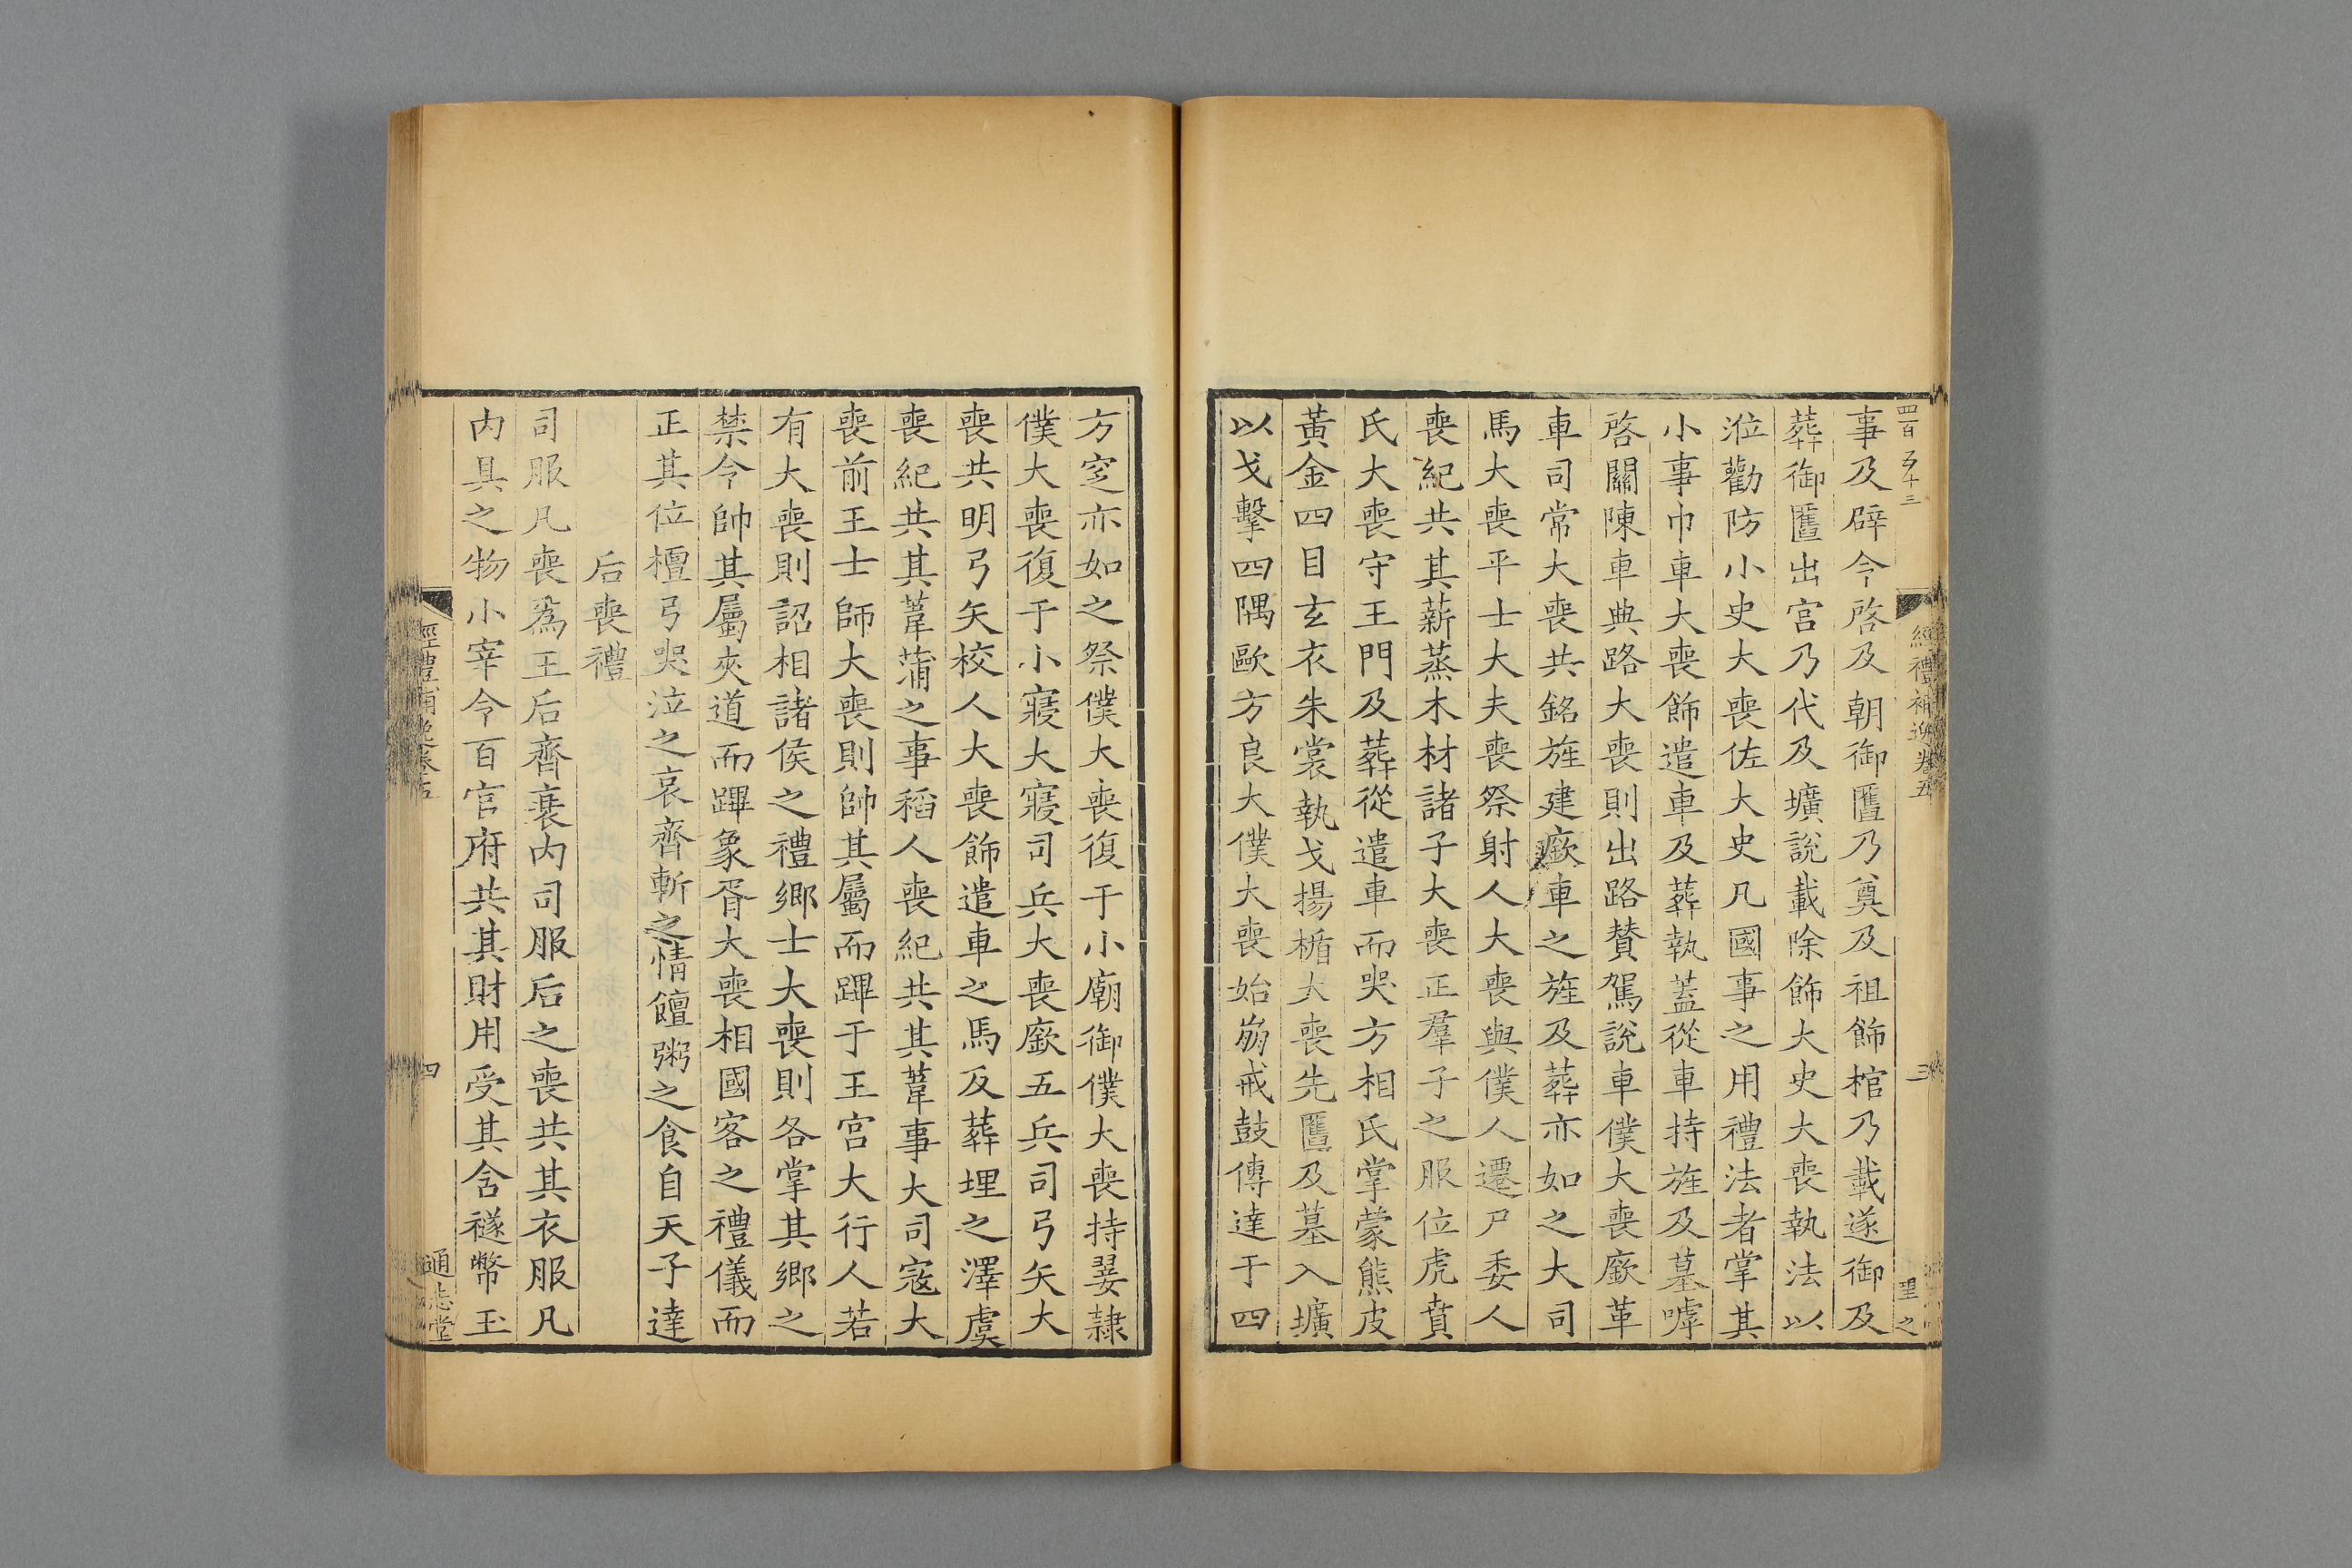 四百五十三
經禮補逸卷五
三
事及辟令啓及朝御匶乃奠及祖飾棺乃載遂御及
葬御匶出宮乃代及壙說載除飾大史大喪執法以
涖勸防小史大喪佐大史凡國事之用禮法者掌其
小事巾車大喪飾遣車及葬執蓋從車持旌及墓嘑
啓關陳車典路大喪則出路贊駕說車僕大喪廞革
車司常大喪共銘旌建廞車之旌及葬亦如之大司
馬大喪平士大夫喪祭射人大喪與僕人遷尸委人
喪紀共其薪蒸木材諸子大喪正羣子之服位虎賁
氏大喪守王門及葬從遣車而哭方相氏掌蒙熊皮
黃金四目玄衣朱裳執戈揚楯大喪先匶及墓入壙
以戈擊四隅歐方良大僕大喪始崩戒鼓傳達于四
方窆亦如之祭僕大喪復于小廟御僕大喪持翣隷
僕大喪復于小寢大寢司兵大喪廞五兵司弓矢大
喪共明弓矢校人大喪飾遣車之馬及葬埋之澤虞
喪紀共其葦蒲之事稻人喪紀共其葦事大司寇大
喪前王士師大喪則帥其屬而蹕于王宮大行人若
有大喪則詔相諸侯之禮鄉士大喪則各掌其鄉之
禁令帥其屬夾道而蹕象胥大喪相國客之禮儀而
正其位檀弓哭泣之哀齊斬之情饘粥之食自天子達
后喪禮
司服凡喪爲王后齊衰內司服后之喪共其衣服凡
內具之物小宰令百官府共其財用受其含襚幣玉
經禮補逸卷五
四
通志堂